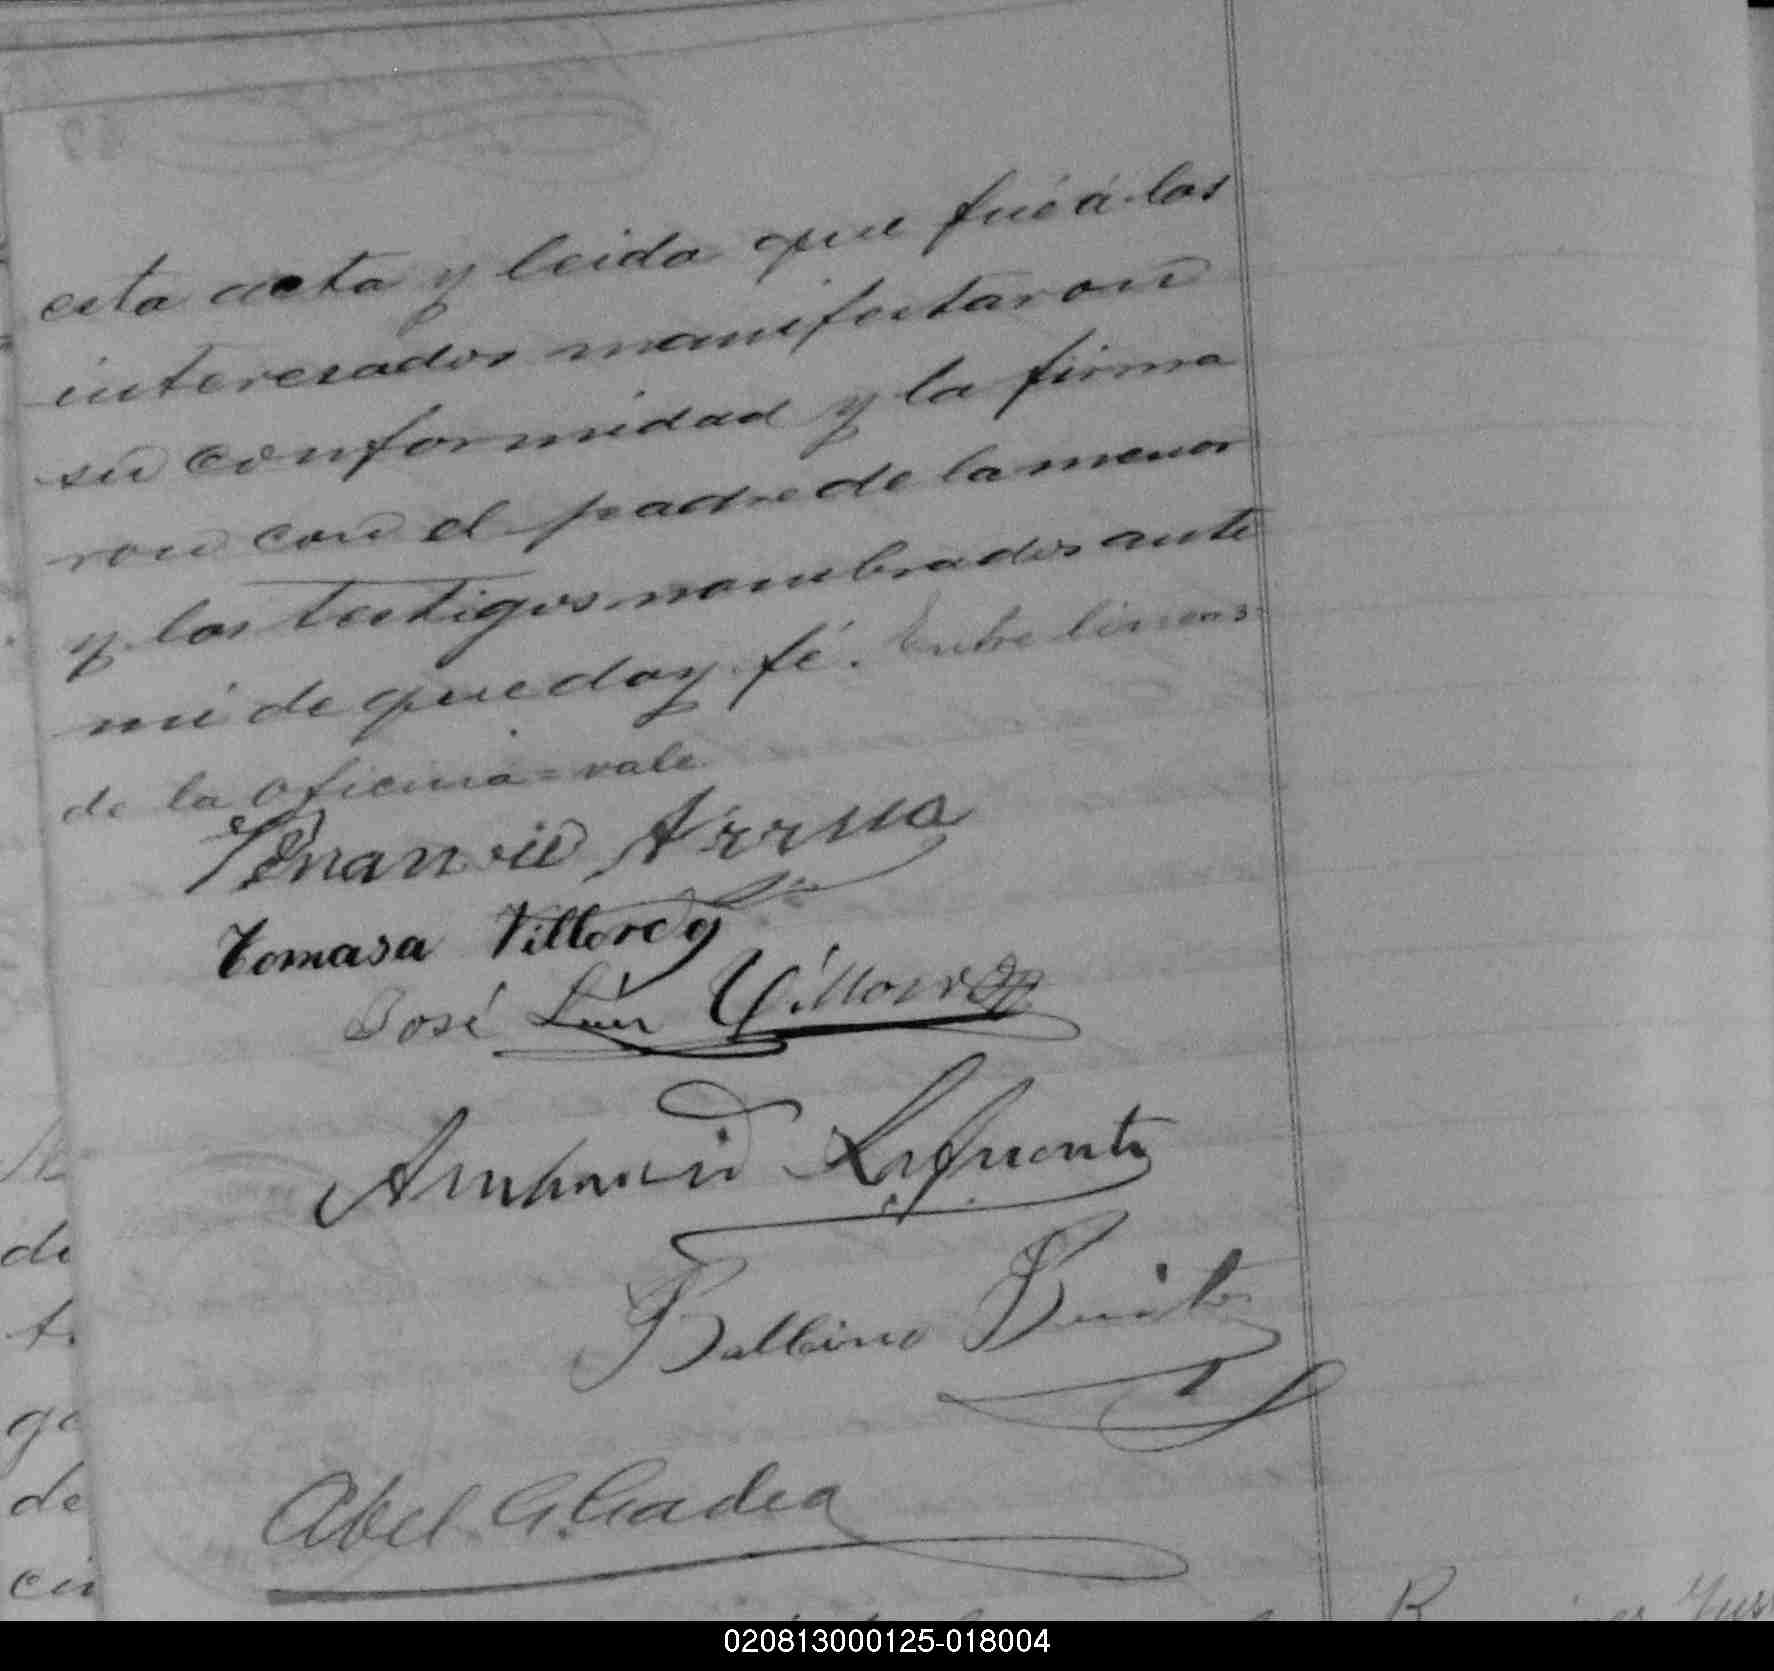 esta acta y leida que fué á los
interesados manifestaron
su conformidad y la firma
ron con el padre de la menor
y los testigos nombrados ante
mi de que doy fé. Entre lineas
de la oficina = vale
Venancio Arrua
Tomasa Villordo
José Luis Villordo
Lafuente
Balbino Benitez
Abel G. Gadea
de
ge
de
020813000125-018004